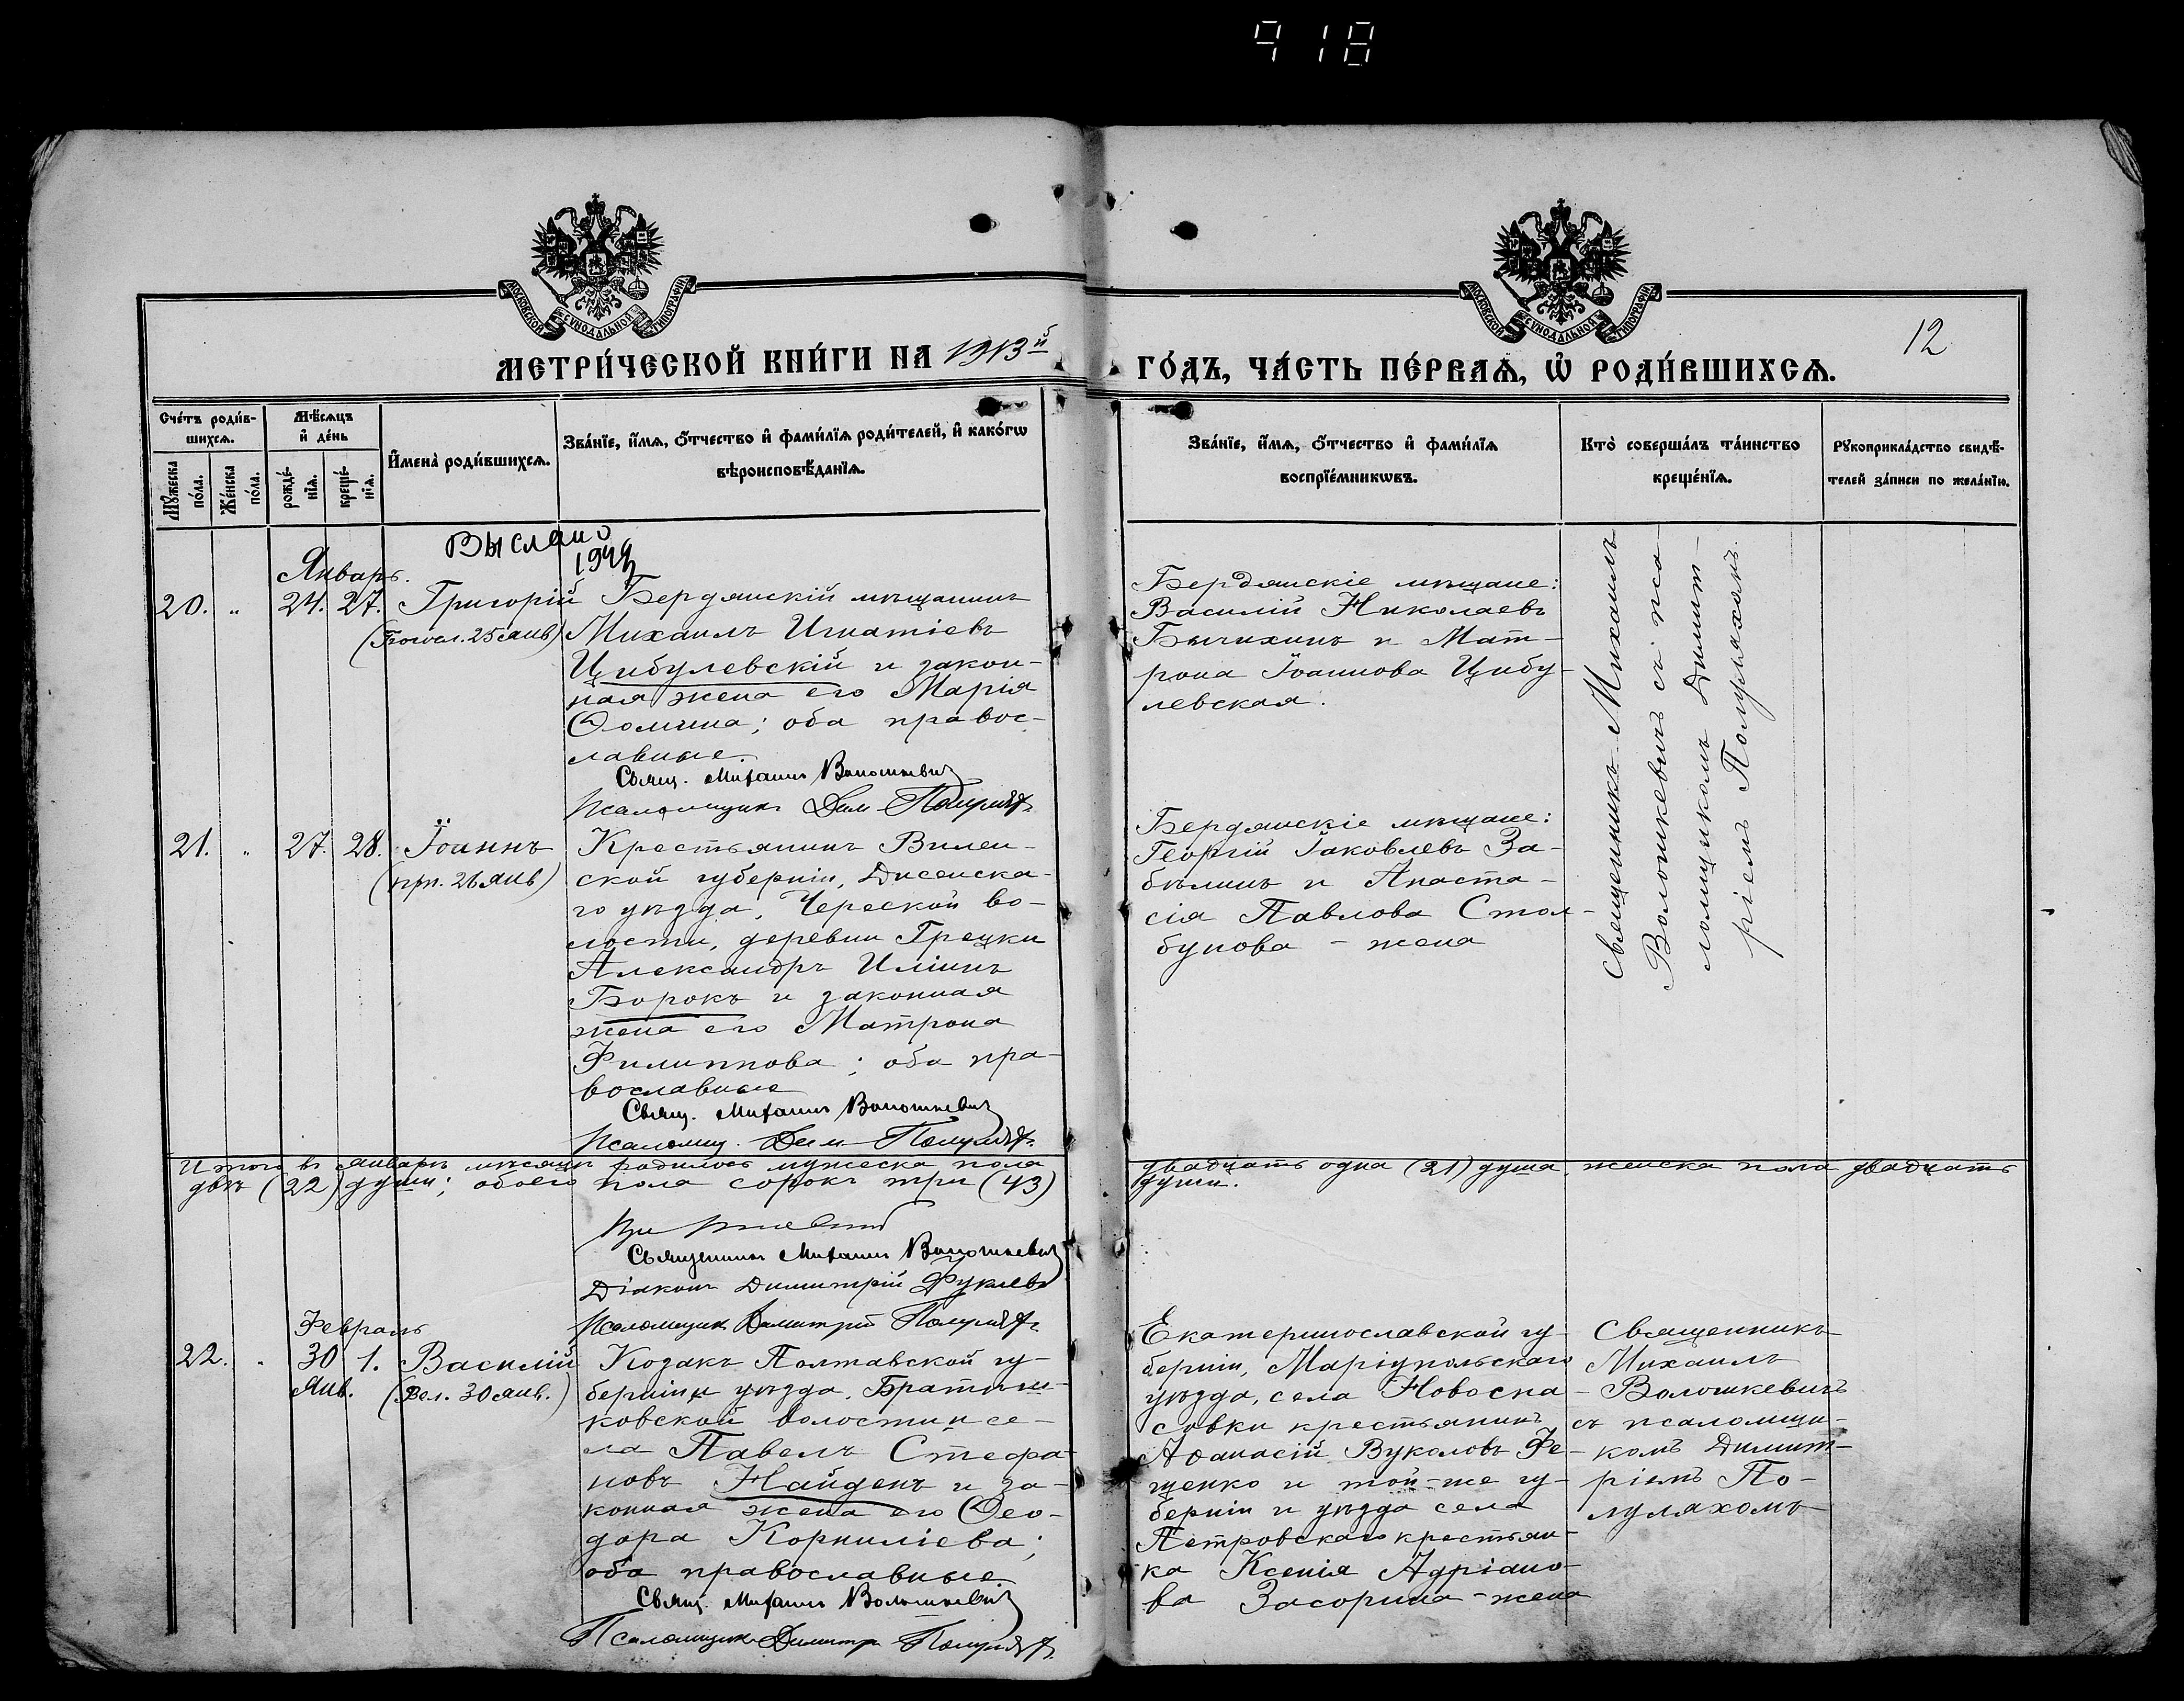 918
МОСКОВСКОЙ СѴНОДАЛЬНОЙ ТИПОГРАФІИ
МОСКОВСКОЙ СѴНОДАЛЬНОЙ ТИПОГРАФІИ
12
МЕТРИ́ЧЕСКОЙ КНИ́ГИ НА 1913й ГО́ДЪ, ЧА́СТЬ ПЕ́РВАѦ, Ѡ҆ РОДИ́ВШИХСѦ.
Сче́тъ роди́в-
шихсѧ.
Мѣ́сѧцъ
и҆ де́нь
Мꙋ́жеска по́ла.
Же́нска по́ла.
рожде́-
нїѧ.
креще́-
нїѧ.
И҆мена̀ роди́вшихсѧ.
Зва́нїе, и҆́мѧ, ѻ҆́тчество и҆ фами́лїѧ роди́телей, и҆ како́гѡ
вѣроисповѣ́данїѧ.
Зва́нїе, и҆́мѧ, ѻ҆́тчество и҆ фами́лїѧ
воспрїе́мникѡвъ.
Кто̀ соверша́лъ та́инство
креще́нїѧ.
Рꙋкоприкла́дство свидѣ́-
телей за́писи по жела́нїю.
Выслано
1949
Январь.
20. „ 24. 27. Григорій
25 янв)
Бердянскій мѣщанинъ
Михаилъ Игнатіевъ
Цибулевскій и закон-
ная жена его Марія
Ѳомина; оба правос-
лавные.
Свящ. Михаилъ Волошкевичъ
Псаломщикъ Дим Полулях
Бердянскіе мѣщане:
Василій Николаевъ
Бычихинъ и Мат-
рона Іоаннова Цибу-
левская.
Священникъ Михаилъ
Волошкевичъ съ пса-
ломщикомъ Димит-
ріемъ Полуляхомъ.
21. „ 27. 28. Іоаннъ
26 янв)
Крестьянинъ Вилен-
ской губерніи, Дисенска-
го уѣзда, Череской во-
лости, деревни Грецки
Александръ Иліинъ
Борокъ и законная
жена его Матрона
Филиппова; оба пра-
вославные
Свящ. Михаилъ Волошкевичъ
Псаломщ. Дим Полулях.
Бердянскіе мѣщане:
Георгій Іаковлевъ За-
бѣлинъ и Анаста-
сія Павлова Стол-
бунова - жена
Итого въ январѣ мѣсяцѣ родилось мужеска пола двадцать одна (21) душа, женска пола двадцать
двѣ (22) души; обоего пола сорокъ три (43) души.
Священникъ Михаилъ Волошкевичъ
Діаконъ Димитрій
Псаломщикъ Димитрій Полулях
Февраль
22. „ 30 1. Василій
Янв. 30 янв.)
Козакъ Полтавской гу-
берніи и уѣзда,
ковской волости и се-
ла Павелъ Стефа-
новъ Найденъ и за-
конная жена его Ѳео-
дора Корниліева;
оба православные
Свящ. Михаилъ Волошкевичъ
Псаломщикъ Димитр Полулях.
Екатеринославской гу-
берніи, Маріупольскаго
уѣзда, села Новоспа-
совки крестьянинъ
Аѳанасій Вуколовъ Фе-
щенко и той-же гу-
берніи и уѣзда села
Петровскаго крестьян-
ка Ксенія Адріано-
ва Засорина - жена
Священникъ
Михаилъ
Волошкевичъ
съ псаломщи-
комъ Димит-
ріемъ По-
луляхомъ